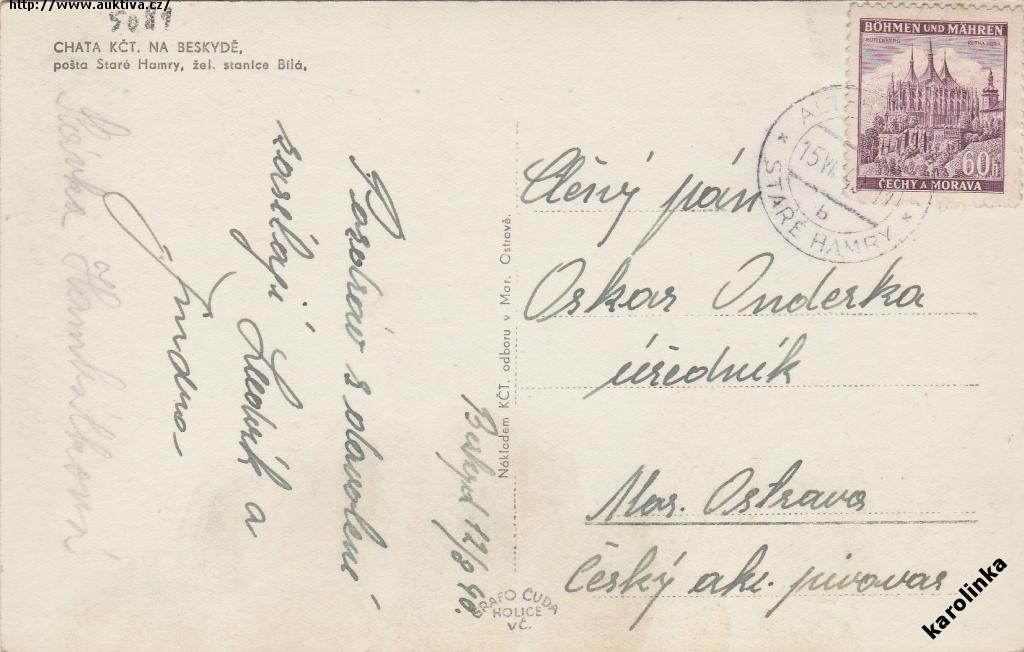 http://www.auktiva.cz/
5089
CHATA KČT. NA BESKYDĚ,
pošta Staré Hamry, žel. stanice Bílá,
BÖHMEN UND MÄHREN
KUTTENBERG KUTNÁ HORA
60h
ČECHY A MORAVA
STARÉ HAMRY
b
Pozdrav s dovolené
zasílají Ludvík a
Jindra
Beskyd 12/8 40.
Nákladem KČT. odboru v Mor. Ostravě.
GRAFO ČUDA
HOLICE
VČ.
Ctěný pán
Oskar Onderka
úředník
Mor. Ostrava
Český akc. pivovar
karolinka